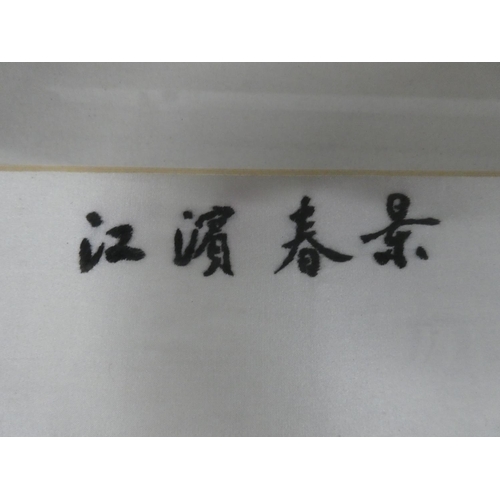 江濱春景